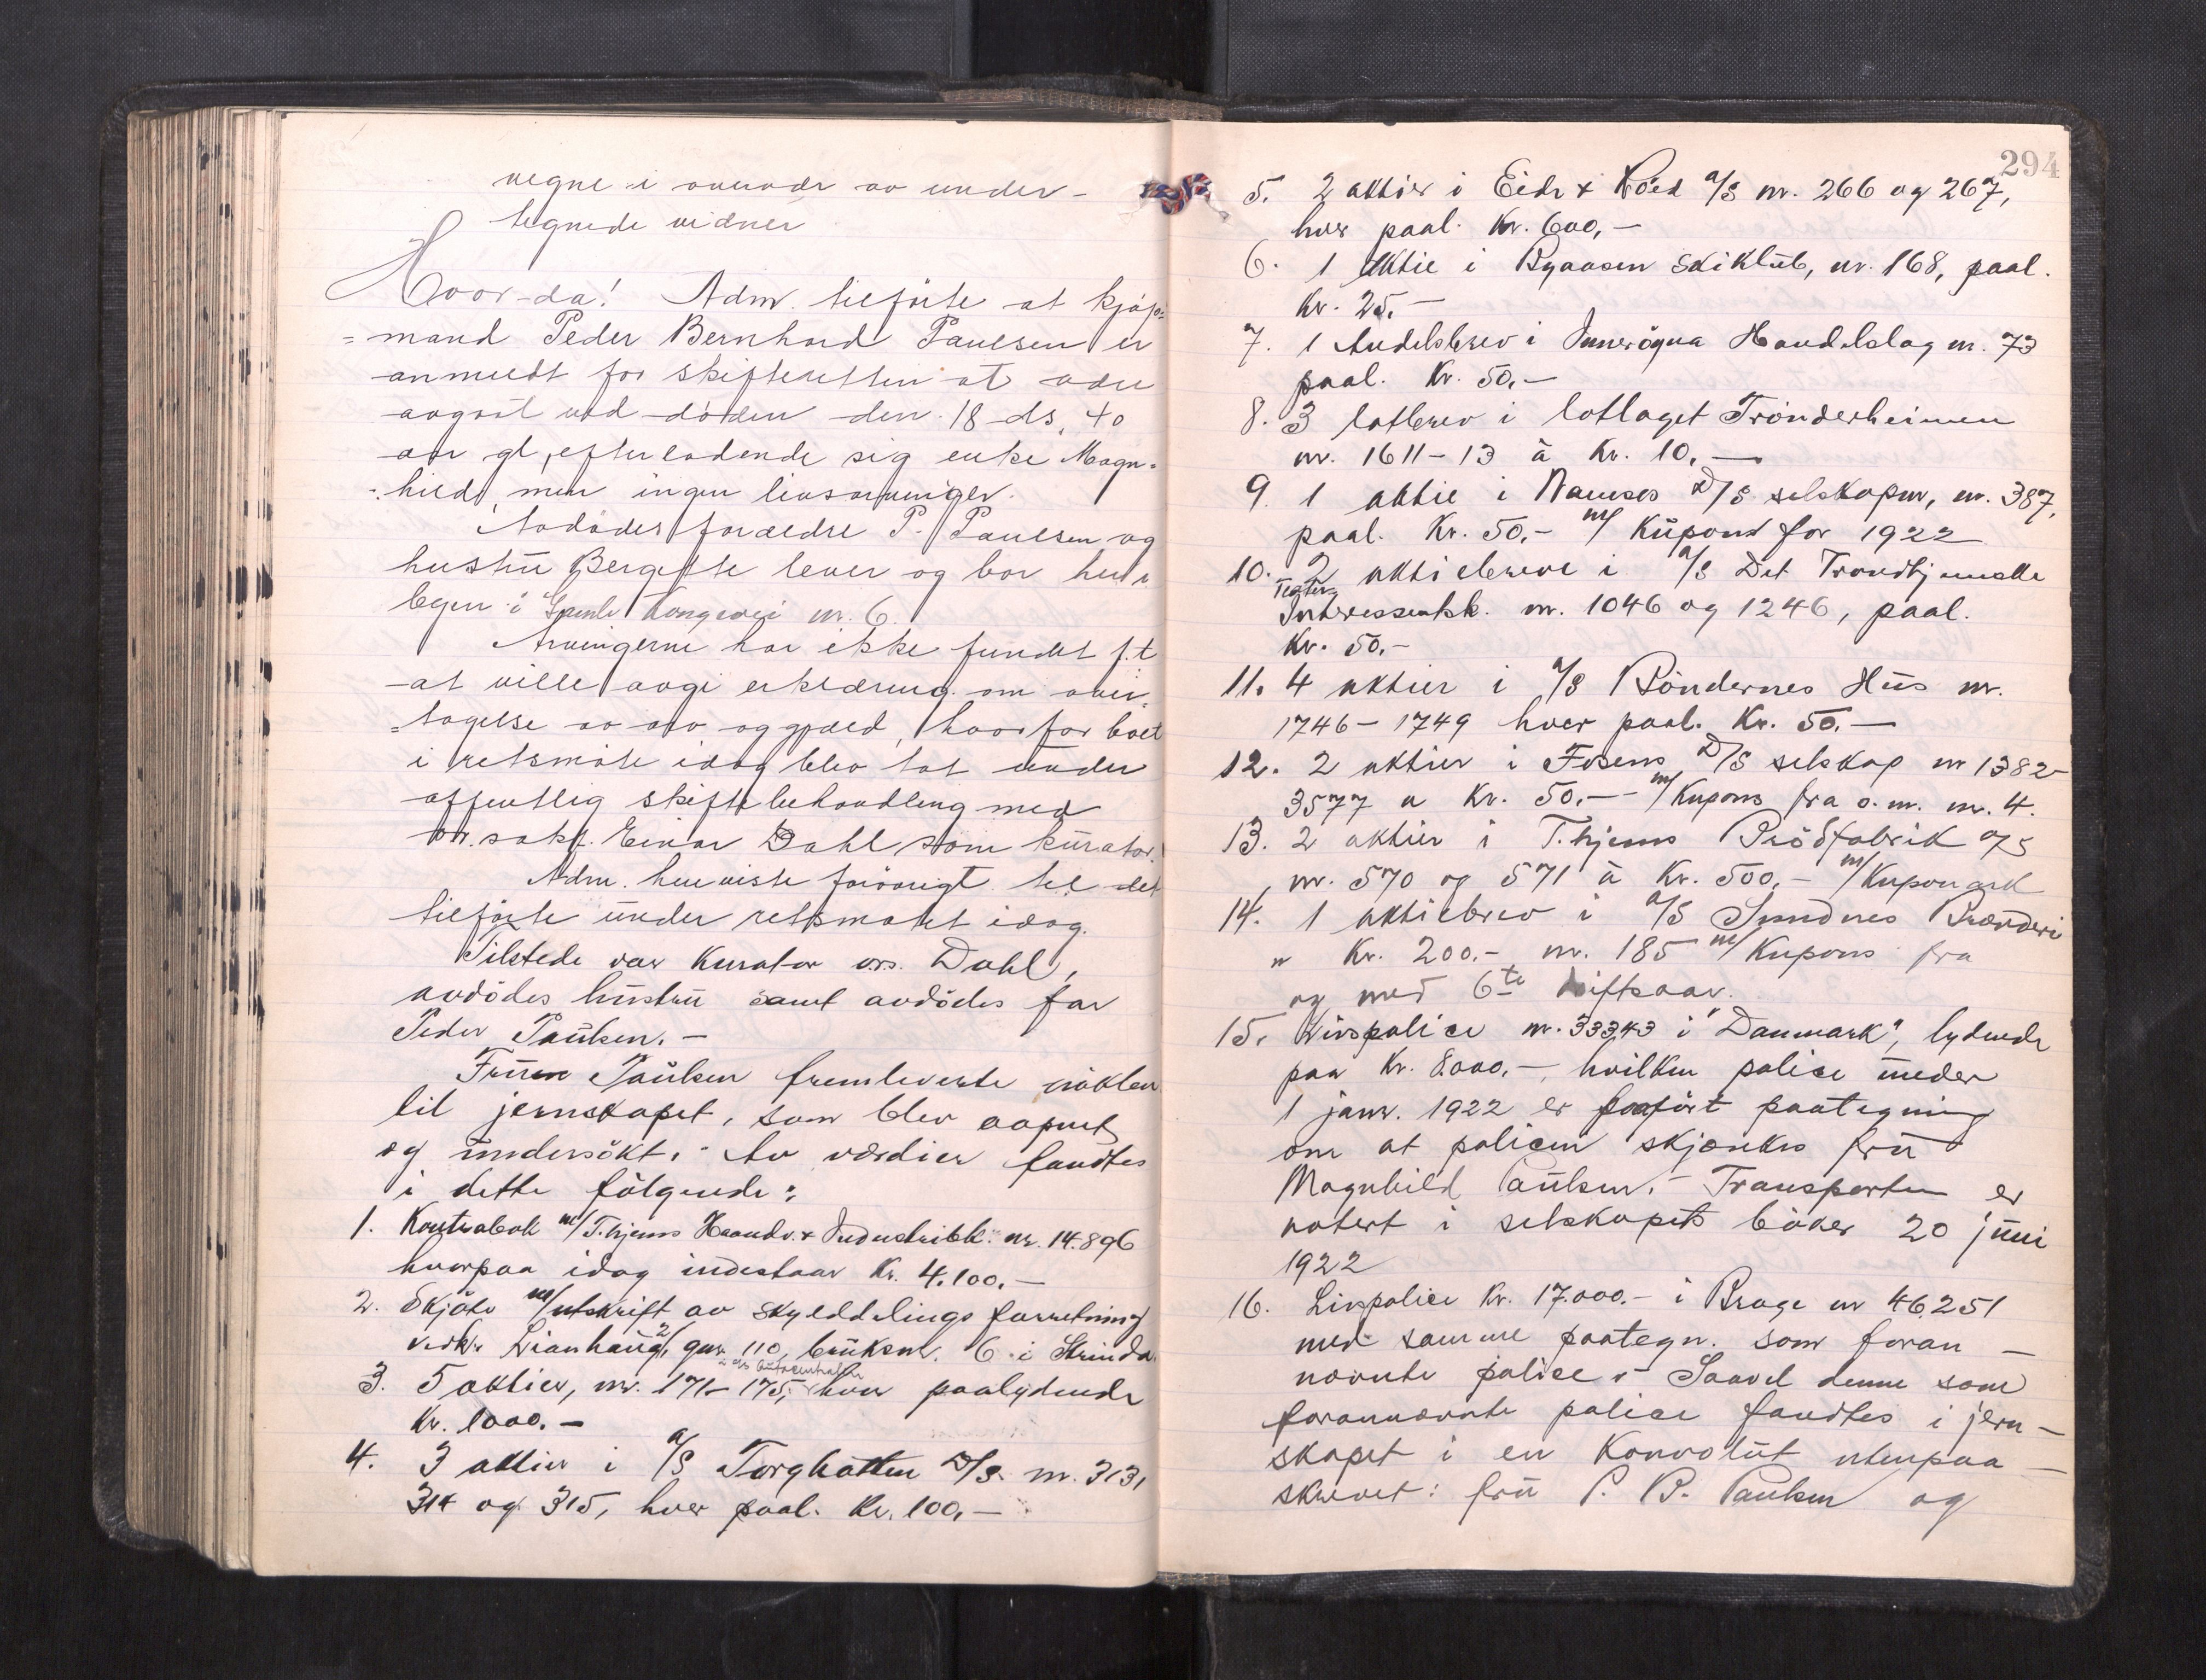 vegne i overvær av under-
tegnede vidner
Hvor-da! Adm. tilførte at kjøp=
=mand Peder Bernhard Paulsen er
anmeldt for skifteretten at være
avgaat ved døden den 18 ds, 40
aar gl, efterladende sig enke Magn=
=hild, men ingen livsarvinger.
Avdødes forældre P. Paulsen og
hustrü Bergitte lever og bor her i
byen i Gamle Kongevei nr. 6.
Arvingerne har ikke fundet f.t
at ville avgi erklæring om over=
=tagelse av arv og gjæld, hvorfor boet
i retsmøte idag blev tat ünder
offentlig skiftebehandling med
or. sakf. Einar Dahl som kürator.
Adm. henviste forøvrigt til det
tilførte ünder retsmøtet idag.
Tilstede var Kurator o.r.s. Dahl,
avdødes hüstrü samt avdødes far
Peder Paülsen. -
Früen Paülsen fremleverte nøklen
til jernskapet, som blev aapnet
og ündersøkt. Av værdier fandtes
i dette følgende:
1. Kontrabok m/ T.hjems Haandv. & Industribk. nr. 14.896
hvorpaa idag indestaar Kr. 4.100. -
2. Skjøte m/utskrift av skylddelings forretning
vedk. Lianhaüg 2/, gnr. 110, brüksnr. 6 i Strinda.
i a/s Autocentralen
3. 5 aktier, nr. 171 - 175, hver paalydende
Kr. 1000. -
4. 3 aktier i A/S Torghatten D/S. nr. 313,
314 og 315, hver paal. Kr. 100, -
294
5. 2 aktier i Eide & Röed A/S nr. 266 og 267,
hver paal. Kr. 600, -
6. 1 Aktie i Byaasen Skiklüb, nr. 168, paal.
Kr. 25. -
7. 1 Andelsbrev i Inderøyna Handelslag nr. 73
paal. Kr. 50, -
8. 3 lotbrev i lotlaget Trønderheimen
nr. 1611-13 à Kr. 10, -
9. 1 aktie i Namsos D/S selskaper, nr. 387,
paal. Kr. 50, - m/ Küpond for 1922
10. 2 aktiebreve i A/S Det Trondhjemske
Teater
Interessentsk. nr. 1046 og 1246, paal.
Kr. 50. -
11. 4 aktier i A/S Bøndernes Hüs nr.
1746 - 1749 hver paal. Kr. 50. -
12. 2 aktier i Fosens D/S selskap nr 1382 -
3577 a Kr. 50. - m/Kupons fra o. m. nr. 4.
13. 2 aktier i T.hjems Brödfabrik A/S
nr. 570 og 571 à Kr. 500, - m/Kuponark
14. 1 aktiebrev i A/S Sundnes Brænderi
a Kr. 200. - nr. 185 m/Kupons fra
og med 6te driftsaar.
15. Livspolice nr. 33343 i "Danmark", lydende
paa Kr. 8000. -, hvilken police ünder
1 janr. 1922 er paaført paategning
om at policen skjænkes frü
Magnhild Paülsen. - Transporten er
notert i selskapets bøker 20 jüni
1922
16. Livspolice Kr. 17.000. - i Brage nr 46251
med samme paategn. som foran -
nævnte police. Saavel denne som
forannævnte police fandtes i jern -
skapet i en Konvolüt utenpaa -
skrevet: frü P. B. Paulsen og